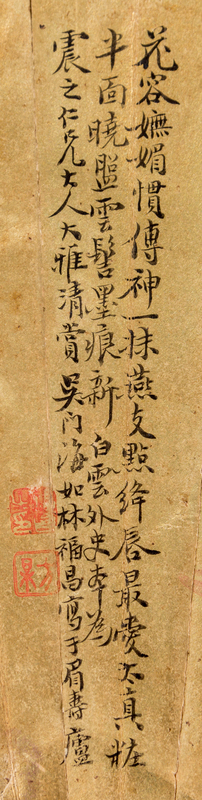 花容嫵媚慣傳神一抹燕支點絳唇最愛太真粧
半面曉盥雲髻墨痕新 白雲外史本為
震之仁兄大人大雅清賞 吳門海如林福昌寫于眉壽廬